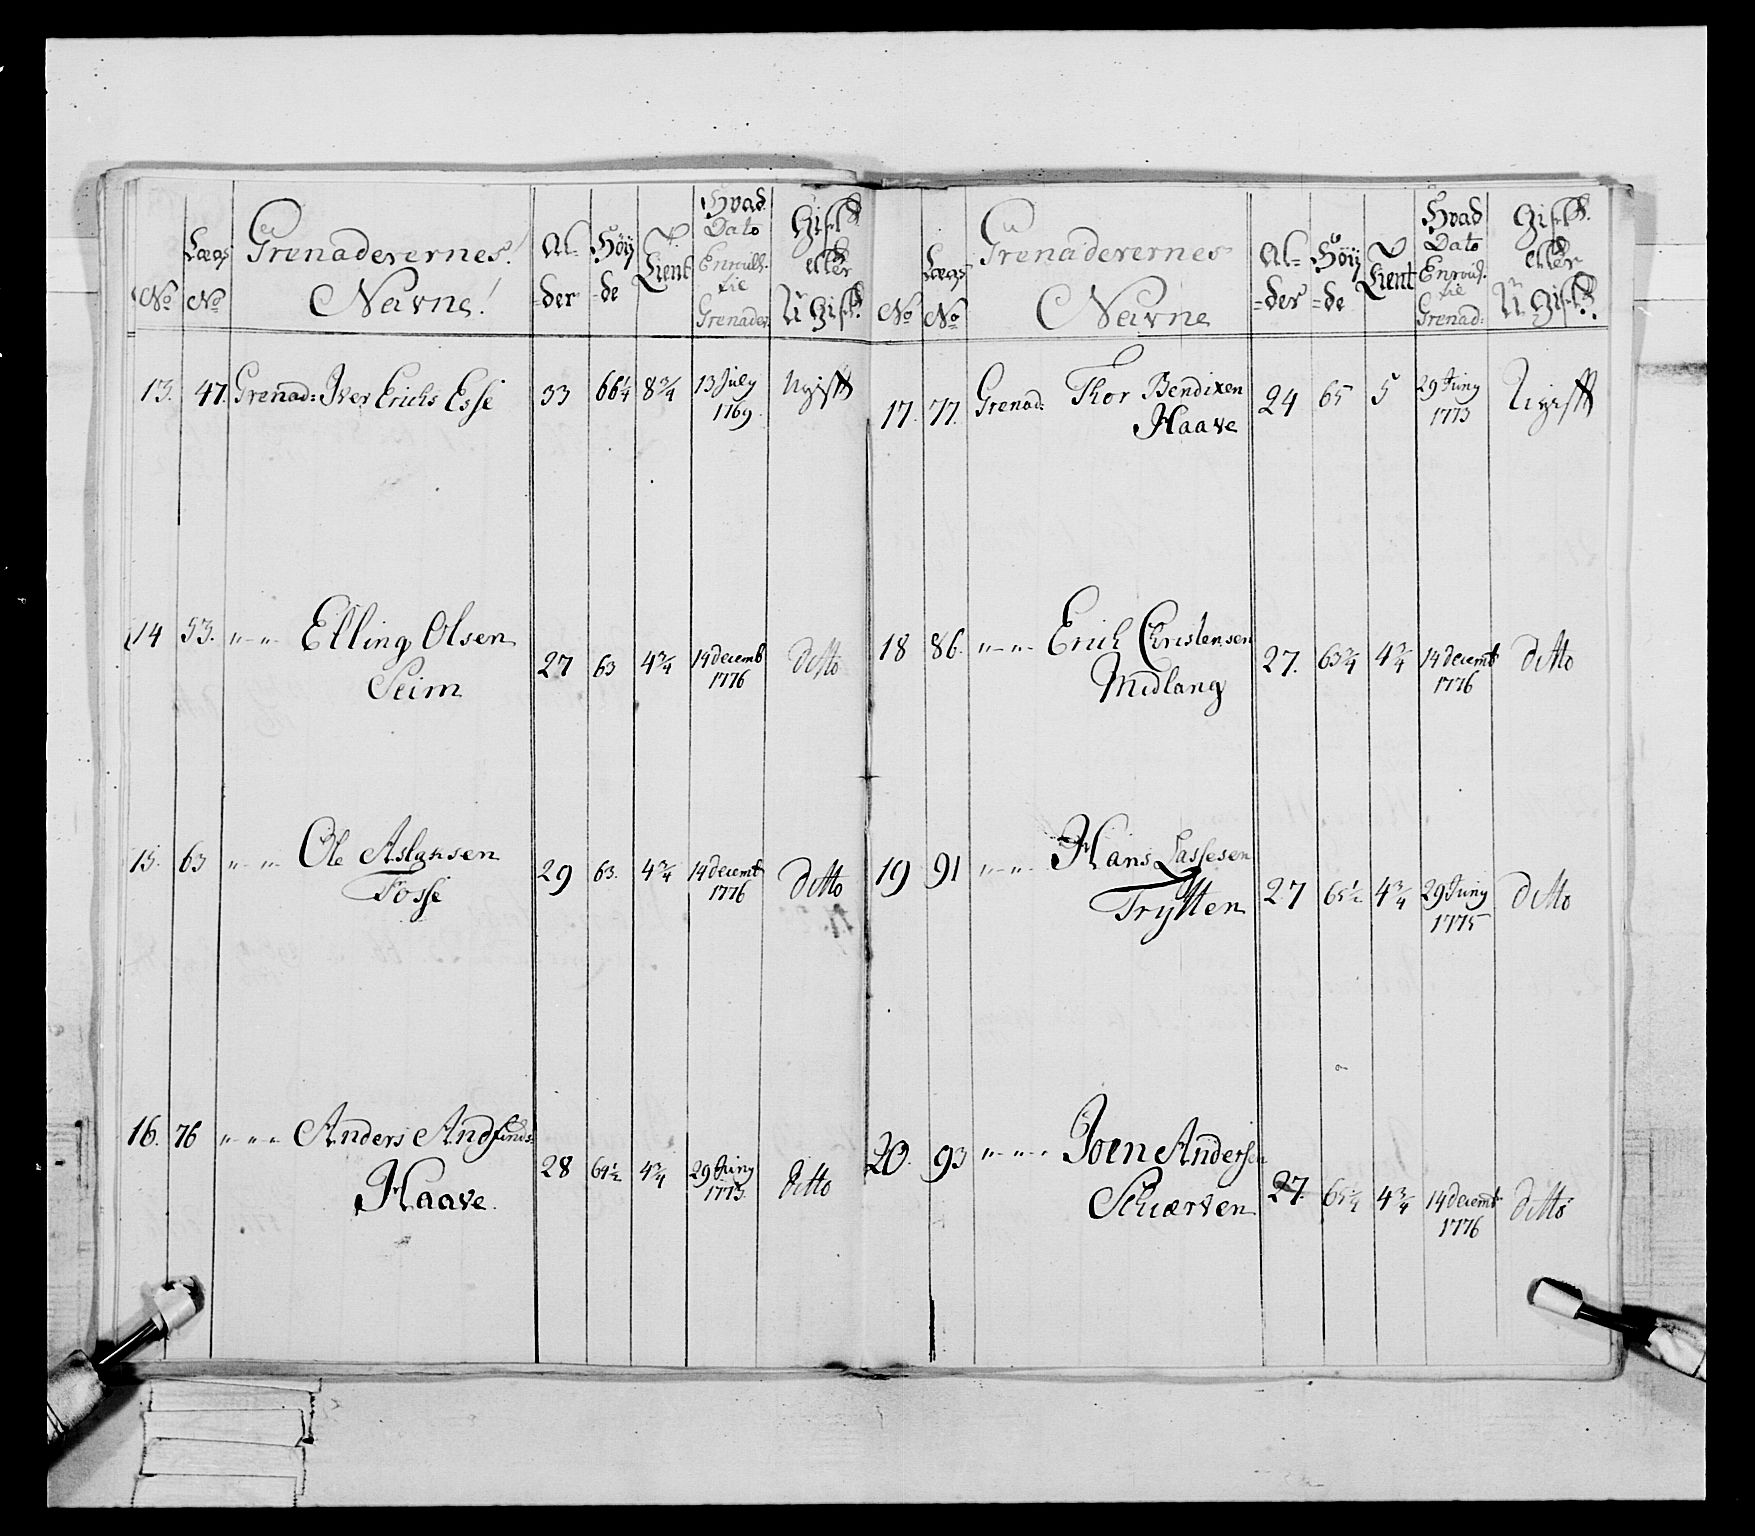 No
Lægs No
Grenaderernes! Navne!
Al-der
Höy-de
Tient
Hvad Dato Enroull. tie Grenader
Gift eller Ugift.
13. 47. Grenad: Iver Erichs Esse 33 66 1/4 8 3/4 13 July 1769 Ugift
14 53. " " Elling Olsen Seim 27 63 4 3/4 14 decemb 1776 Ditto
15. 63 " " Ole Aslagsen Fosse 29 63. 4 3/4 14 decemb 1776 Ditto
16. 76 " " " Anders Andfinds: Haave. 28 64 1/2 4 3/4 29 Juny 1773 Ditto
No
Lægs No
Grenaderernes Navne
Al-der
Höy-de
Tient
Hvad Dato Enroul. tie Grenad:
Gift. eller Ugift.
17. 77. Grenad: Thor Bendixen Haave 24 65 5 29 Juny 1773 Ugift
18 86. " " Erich Christensen Midlang 27. 63 3/4 4 3/4 14 decemb 1776 Ditto
19 91 " " Hans Lassesen Trytten 27 65 1/2 4 3/4 29 Juny 1775 Ditto
20. 93 " " " Joen Andersen Schærven 27. 65 1/2 4 3/4 14 decemb 1776 Ditto